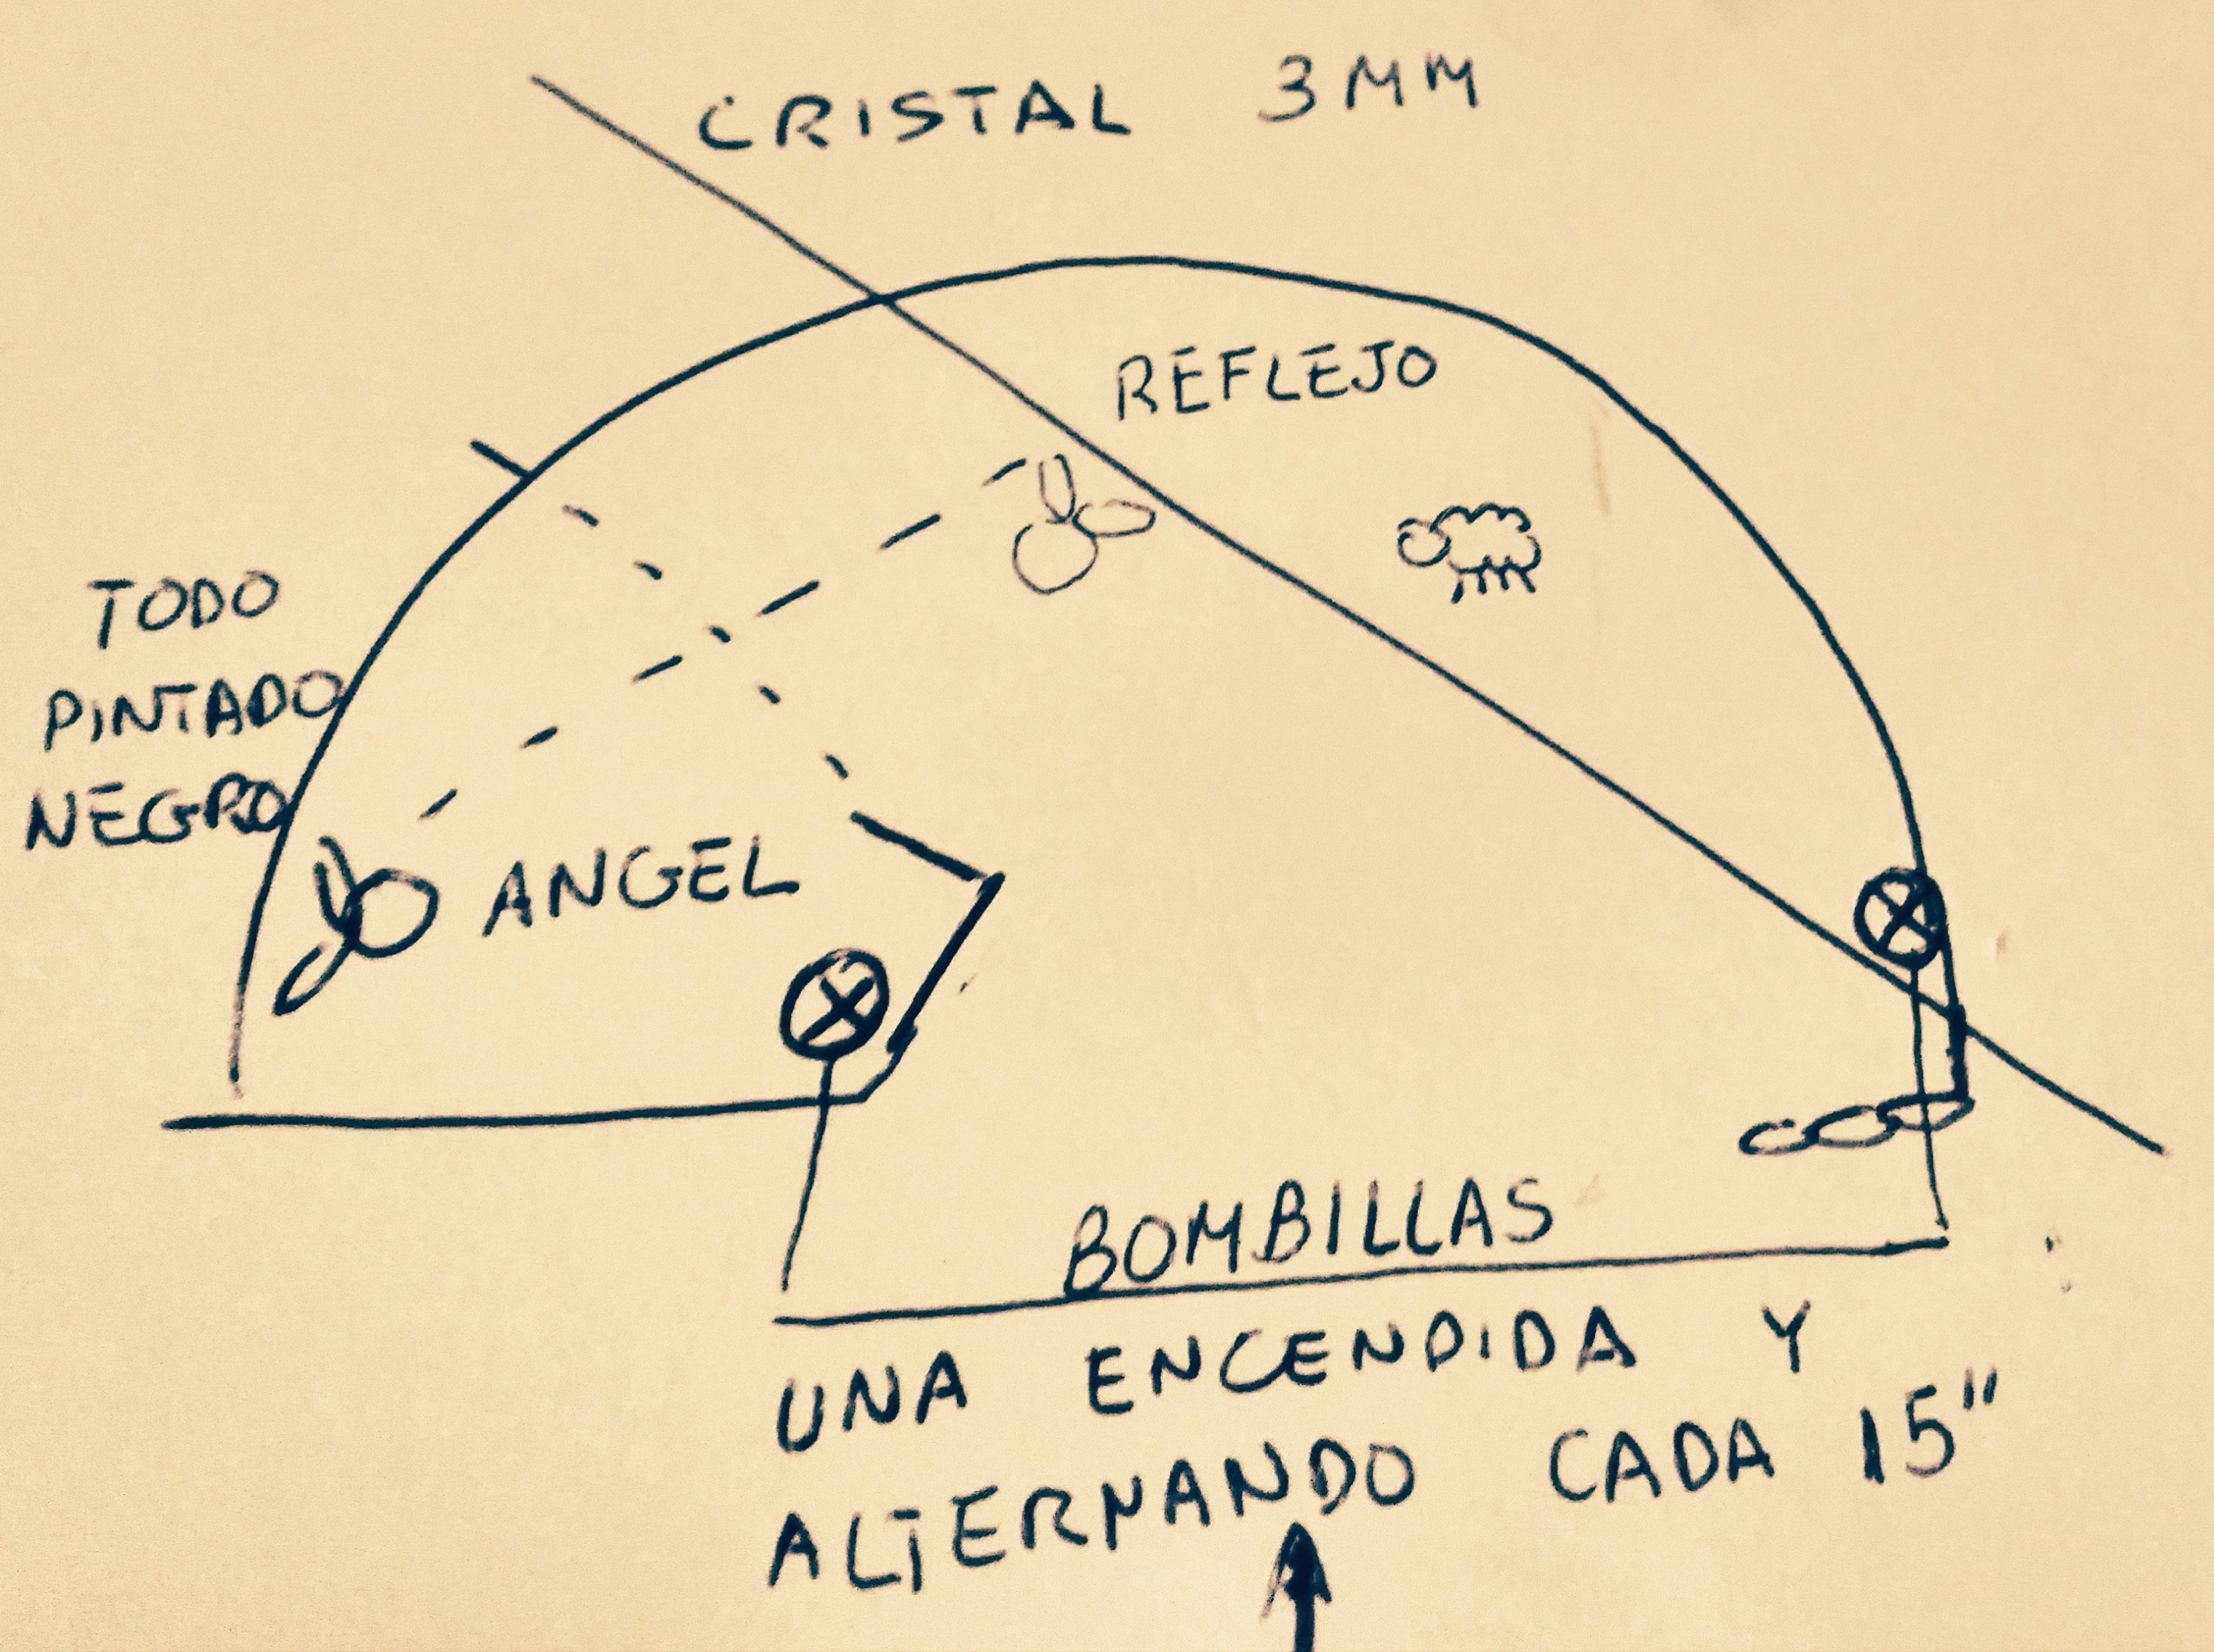 CRISTAL 3MM
REFLEJO
TODO
PINTADO
NEGRO
ANGEL
BOMBILLAS
UNA ENCENDIDA Y
ALTERNANDO CADA 15"